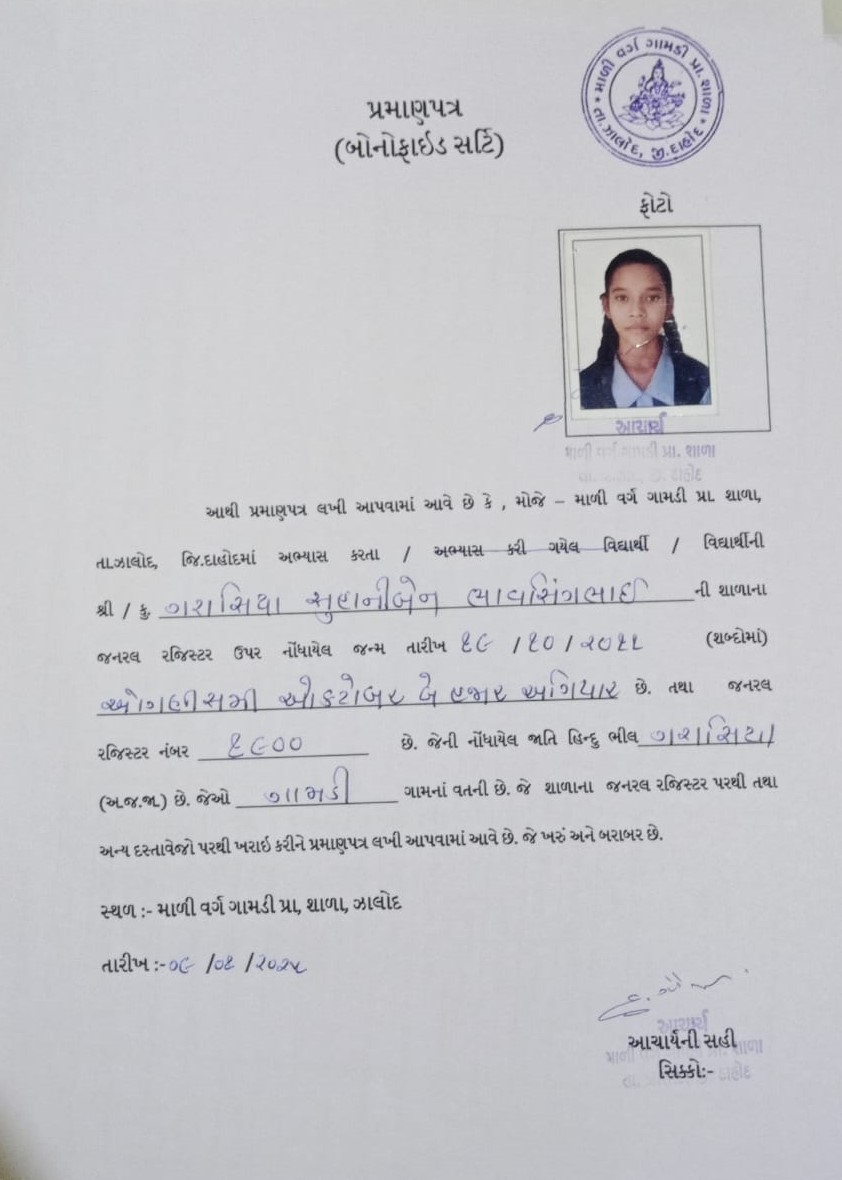 માળી વર્ગ ગામડી પ્રા. શાળા
તા. ઝાલોદ, જી. દાહોદ
પ્રમાણપત્ર
(બોનોફાઇડ સર્ટિ)
ફોટો
આચાર્ય
માળી વર્ગ ગામડી પ્રા. શાળા
દાહોદ
આથી પ્રમાણપત્ર લખી આપવામાં આવે છે કે , મોજે – માળી વર્ગ ગામડી પ્રા. શાળા,
તા.ઝાલોદ, જિ.દાહોદમાં અભ્યાસ કરતા / અભ્યાસ કરી ગયેલ વિદ્યાર્થી / વિદ્યાર્થીની
શ્રી / કુ. ગરાસિયા સુહાનીબેન ભાવસિંગભાઈ ની શાળાના
જનરલ રજિસ્ટર ઉપર નોંધાયેલ જન્મ તારીખ ૧૯ / ૧૦ / ૨૦૧૧ (શબ્દોમાં)
ઓગણીસમી ઓકટોબર બે હજાર અગિયાર છે. તથા જનરલ
રજિસ્ટર નંબર ૧૯૦૦ છે. જેની નોંધાયેલ જાતિ હિન્દુ ભીલ ગરાસિયા
(અ.જ.જા.) છે. જેઓ ગામડી ગામનાં વતની છે. જે શાળાના જનરલ રજિસ્ટર પરથી તથા
અન્ય દસ્તાવેજો પરથી ખરાઇ કરીને પ્રમાણપત્ર લખી આપવામાં આવે છે. જે ખરું અને બરાબર છે.
સ્થળ :- માળી વર્ગ ગામડી પ્રા, શાળા, ઝાલોદ
તારીખ :- ૦૯ /૦૧ /૨૦૨૫
આચાર્ય
આચાર્યની સહી
સિક્કો:-